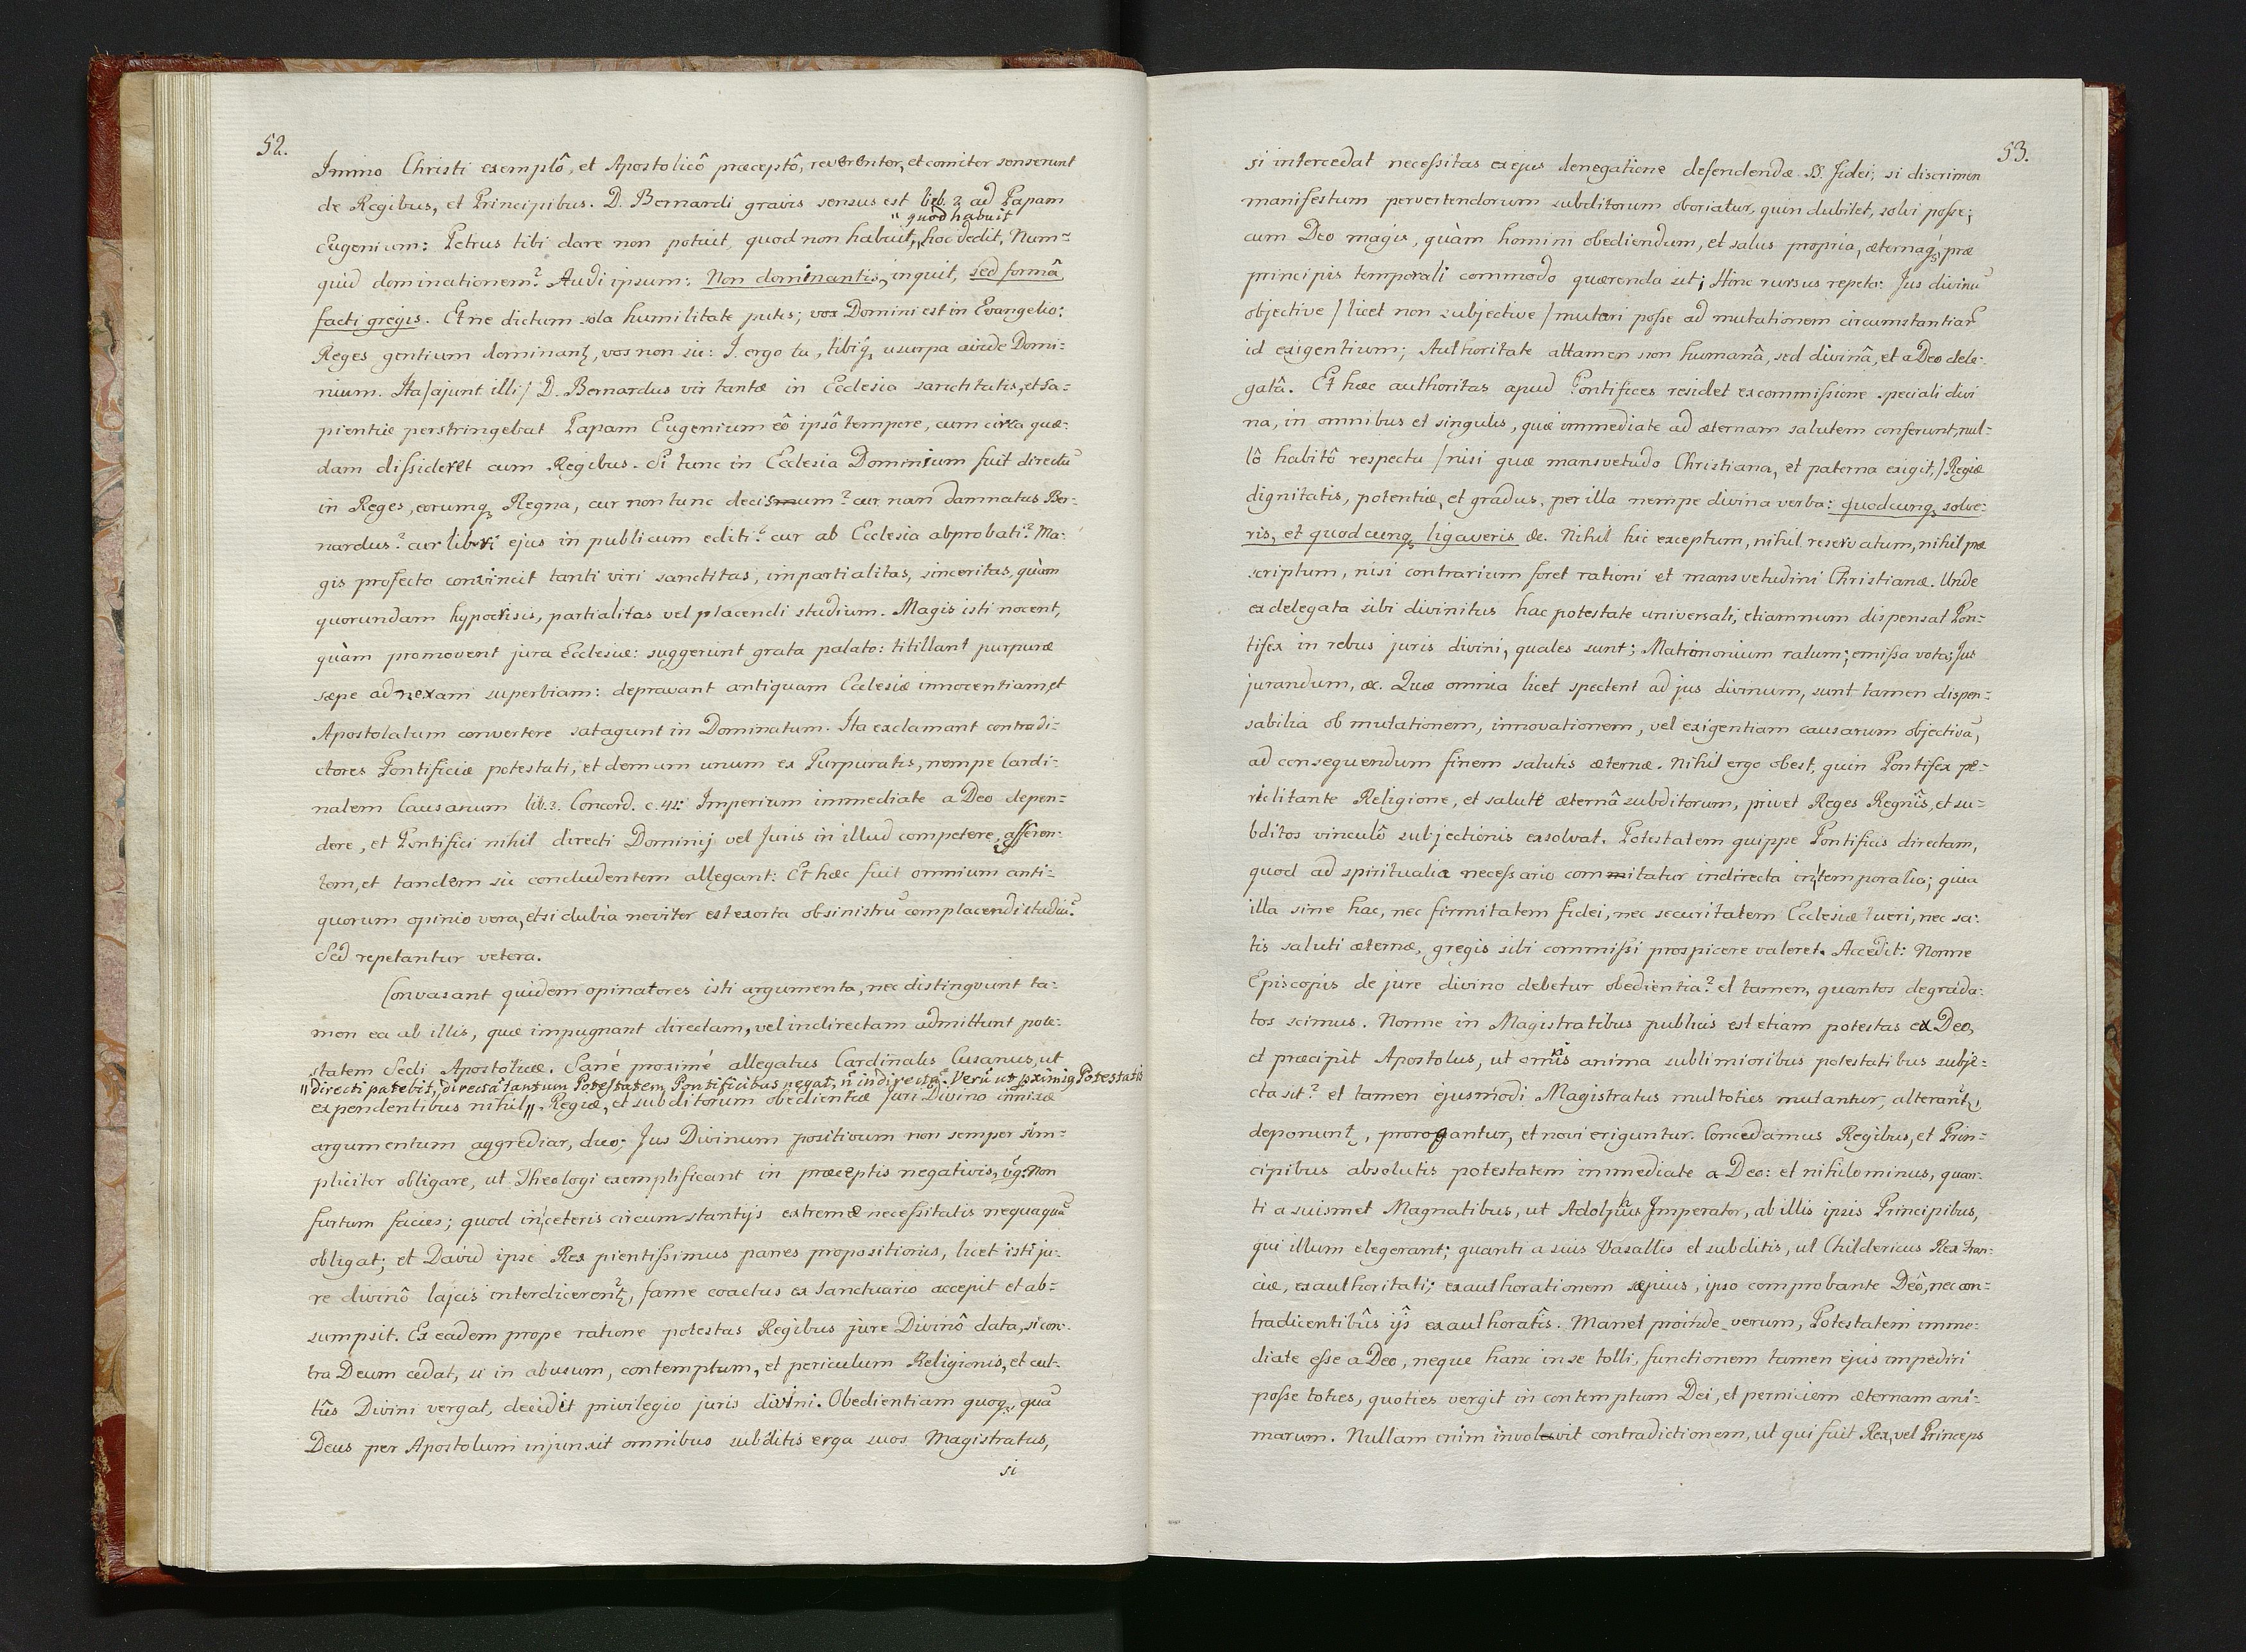 52.
Immo Christi exemplô, et Apostolicô præceptô, reverenter, et comiter senserunt
de Regibus, et Principibus. D. Bernardi gravis sensus est lib. 2. ad Papam
" quod habuit
Eugenium: Petrus tibi dare non potuit, quod non habuit, " hoc dedit, Num=
quid dominationem? Audi ipsum: Non dominantis, inquit, sed formâ
facti gregis. Et ne dictum sola humilitate putes; vox Domini est in Evangelio:
Reges gentium dominantʒ, vos non sic: I. ergo tu, tibiqʒ usurpa aude Domi=
nium. Ita /ajunt illi/ D. Bernardus vir tantæ in Ecclesia sanctitatis, et sa=
pientiæ perstringebat Papam Eugenium eô ipsô tempore, cum circa quæ=
dam dissideret cum Regibus. Si tunc in Ecclesia Dominium fuit directū
in Reges, eorumqʒ Regna, cur non tunc decisum? cur nan damnatus Ber=
nardus? cur libri ejus in publicum editi? cur ab Ecclesia abprobati? Ma=
gis profecto convincit tanti viri sanctitas, impartialitas, sinceritas, quàm
quorundam hypocrisis, partialitas vel placendi studium. Magis isti nocent,
quàm promovent jura Ecclesiæ: suggerunt grata palato: titillant purpuræ
sæpe adnexam superbiam: depravant antiquam Ecclesiæ innocentiam, et
Apostolatum convertere satagunt in Dominatum. Ita exclamant contradi=
ctores Pontificiæ potestati, et demum unum ex Purpuratis, nempe Cardi=
nalem Cusanum lib. 3. Concord. c. 41: Imperium immediate a Deo depen=
dere, et Pontifici nihil directi Dominij vel Juris in illud competere, asseren=
tem, et tandem sic concludentem allegant: Et hæc fuit omnium anti=
quorum opinio vera, etsi dubia noviter est exorta ob sinistrū complacendi studiū.
Sed repetantur vetera.
Convasant quidem opinatores isti argumenta, nec distingvunt ta=
men ea ab illis, quæ impugnant directam, vel indirectam admittunt pote=
statem Sedi Apostolicæ. Sanè proximè allegatus Cardinalis Cusanus, ut
" directi patebit, directā tantum Potestatem Pontificibus negat, n̄ indirectā. Verū ut pximiq Potestatis
expendentibus nihil " Regiæ, et subditorum obedientiæ Juri Divino innixæ
argumentum aggrediar, duo; Jus Divinum positivum non semper sim=
pliciter obligare, ut Theologi exemplificant in præceptis negativis, vg: Non
furtum facies; quod in ceteris circumstantijs extremæ necessitatis nequaquā
obligat; et David ipse Rex pientissimus panes propositionis, licet isti ju=
re divinô lajcis interdicerentʒ, fame coactus ex Sanctuario accepit et ab=
sumpsit. Ex eadem prope ratione potestas Regibus jure Divinô data, si con=
tra Deum cedat, si in abusum, contemptum, et periculum Religionis, et cul=
tûs Divini vergat, decidit privilegio juris divini. Obedientiam quoqʒ, quā
Deus per Apostolum injunxit omnibus subditis erga suos Magistratus,
si
53.
si intercedat necessitas ex ejus denegatione defendendæ SS. Fidei; si discrimen
manifestum pervertendorum subditorum oboriatur, quin dubitet, solvi posse;
cum Deo magis, quàm homini obediendum, et salus propria, æternaqʒ præ
principis temporali commodo quærenda sit; Hinc rursus repeto: Jus divinū
objective /licet non subjective/ mutari posse ad mutationem circumstantiar̄
id exigentium; Authoritate attamen non humanâ, sed divinâ, et a Deo dele=
gatâ. Et hæc authoritas apud Pontifices residet ex commissione speciali divi
na, in omnibus et singulis, quæ immediate ad æternam salutem conferunt, nul=
lô habitô respectu /nisi quæ mansvetudo Christiana, et paterna exigit,/ Regiæ
dignitatis, potentiæ, et gradus, per illa nempe divina verba: quodcunqʒ solve=
ris, et quodcunqʒ ligaveris &c. Nihil hic exceptum, nihil reservatum, nihil præ
scriptum, nisi contrarium foret rationi et mansvetudini Christianæ. Unde
ex delegata sibi divinitus hac potestate universali, etiamnum dispensat Pon=
tifex in rebus juris divini, quales sunt; Matrimonium ratum; emissa vota; Jus
jurandum, &c. Quæ omnia licet spectent ad jus divinum, sunt tamen dispen=
sabilia ob mutationem, innovationem, vel exigentiam causarum objectivā,
ad consequendum finem salutis æternæ. Nihil ergo obest, quin Pontifex pe=
riclitante Religione, et salutê æternâ subditorum, privet Reges Regnîs, et su=
bditos vinculô subjectionis exsolvat. Potestatem quippe Pontificis directam,
quod ad spiritualia necessario comitatur indirecta in temporalia; quia
illa sine hac, nec firmitatem fidei, nec securitatem Ecclesiæ tueri, nec sa=
tis saluti æternæ, gregis sibi commissi prospicere valeret. Accedit: Nonne
Episcopis de jure divino debetur obedientia? et tamen, quantos degrada=
tos scimus. Nonne in Magistratibus publicis est etiam potestas ex Deo,
et præcipit Apostolus, ut omnis anima sublimioribus potestatibus subje=
cta sit? et tamen ejusmodi Magistratus multoties mutantur, alterantʒ,
deponuntʒ, prorogantur, et novi eriguntur. Concedamus Regibus, et Prin=
cipibus absolutis potestatem immediate a Deo: et nihilominus, quan=
ti a suismet Magnatibus, ut Adolphus Imperator, ab illis ipsis Principibus,
qui illum elegerant; quanti a suis Vasallis et subditis, ut Childericus Rex Fran=
ciæ, exauthoritati; exauthorationem sæpius, ipso comprobante Deô, nec con=
tradicentibûs ijs exauthoratîs. Manet proinde verum, Potestatem imme=
diate esse a Deo, neque hanc in se tolli, functionem tamen ejus impediri
posse toties, quoties vergit in contemptum Dei, et perniciem æternam ani=
marum. Nullam enim involvit contradictionem, ut qui fuit Rex, vel Princeps